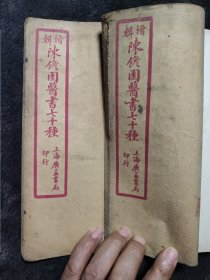 增輯
陳修園醫書七十種
上海廣益書局
印行
增輯
陳修園醫書七十種
上海廣益書局
印行